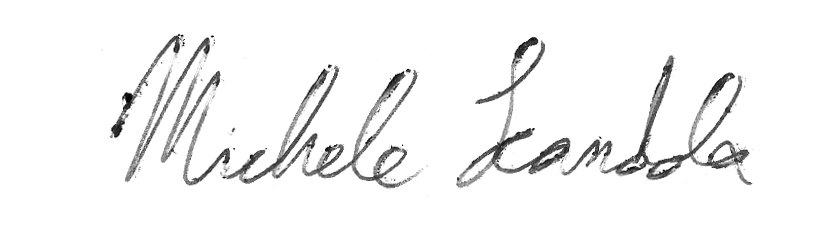 Michele Scandola